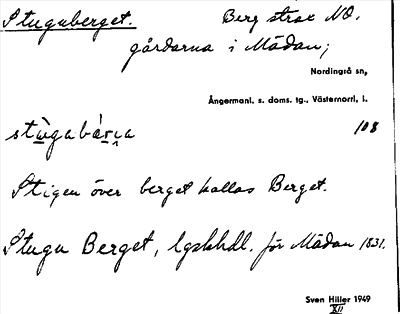 Stuguberget. Berg strax NO.
gårdarna i Mädan;
Nordingrå sn,
Ångermanl. s. doms. tg., Västernorrl. l.
108
Stigen över berget kallas Berget.
Stugu Berget, lgskhdl. för Mädan 1831.
Sven Hiller 1949
XII